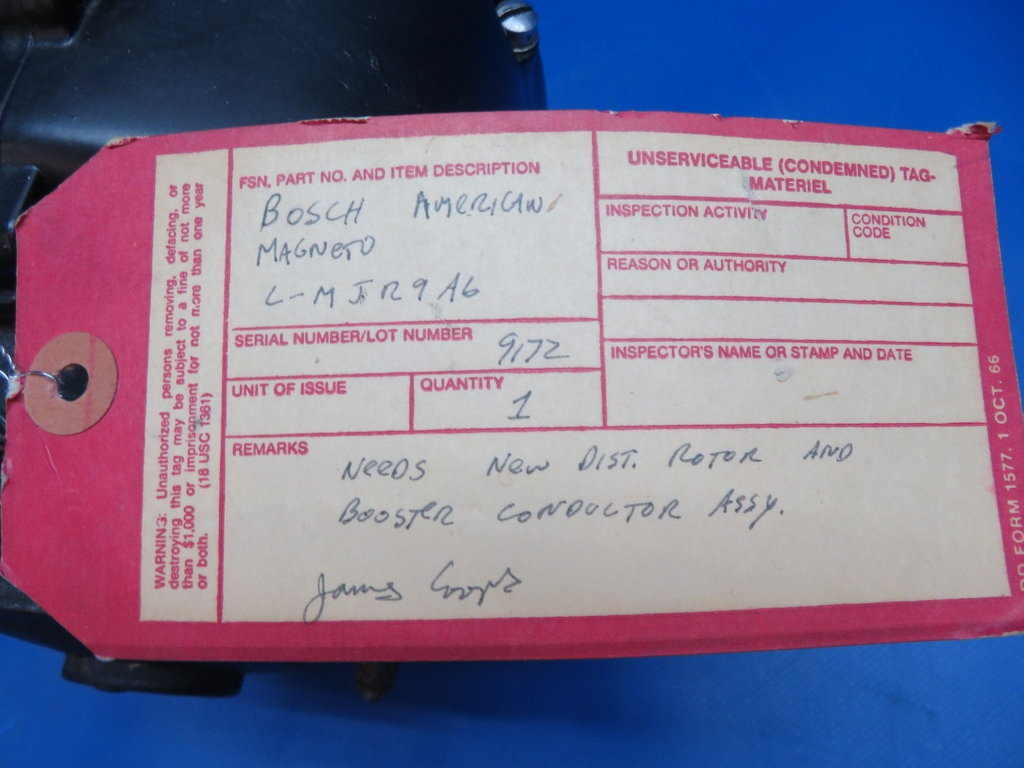 WARNING: Unauthorized persons removing, defacing, or
destroying this tag may be subject to a fine of not more
than $1,000 or imprisonment for not more than one year
or both. (18 USC 1361)
FSN, PART NO. AND ITEM DESCRIPTION
BOSCH AMERICAN
MAGNETO
L-MJR9A6
SERIAL NUMBER/LOT NUMBER 9172
UNIT OF ISSUE
QUANTITY
1
UNSERVICEABLE (CONDEMNED) TAG-
MATERIEL
INSPECTION ACTIVITY
CONDITION
CODE
REASON OR AUTHORITY
INSPECTOR'S NAME OR STAMP AND DATE
REMARKS
NEEDS NEW DIST. ROTOR AND
BOOSTER CONDUCTOR ASSY.
James
DD FORM 1577, 1 OCT. 66